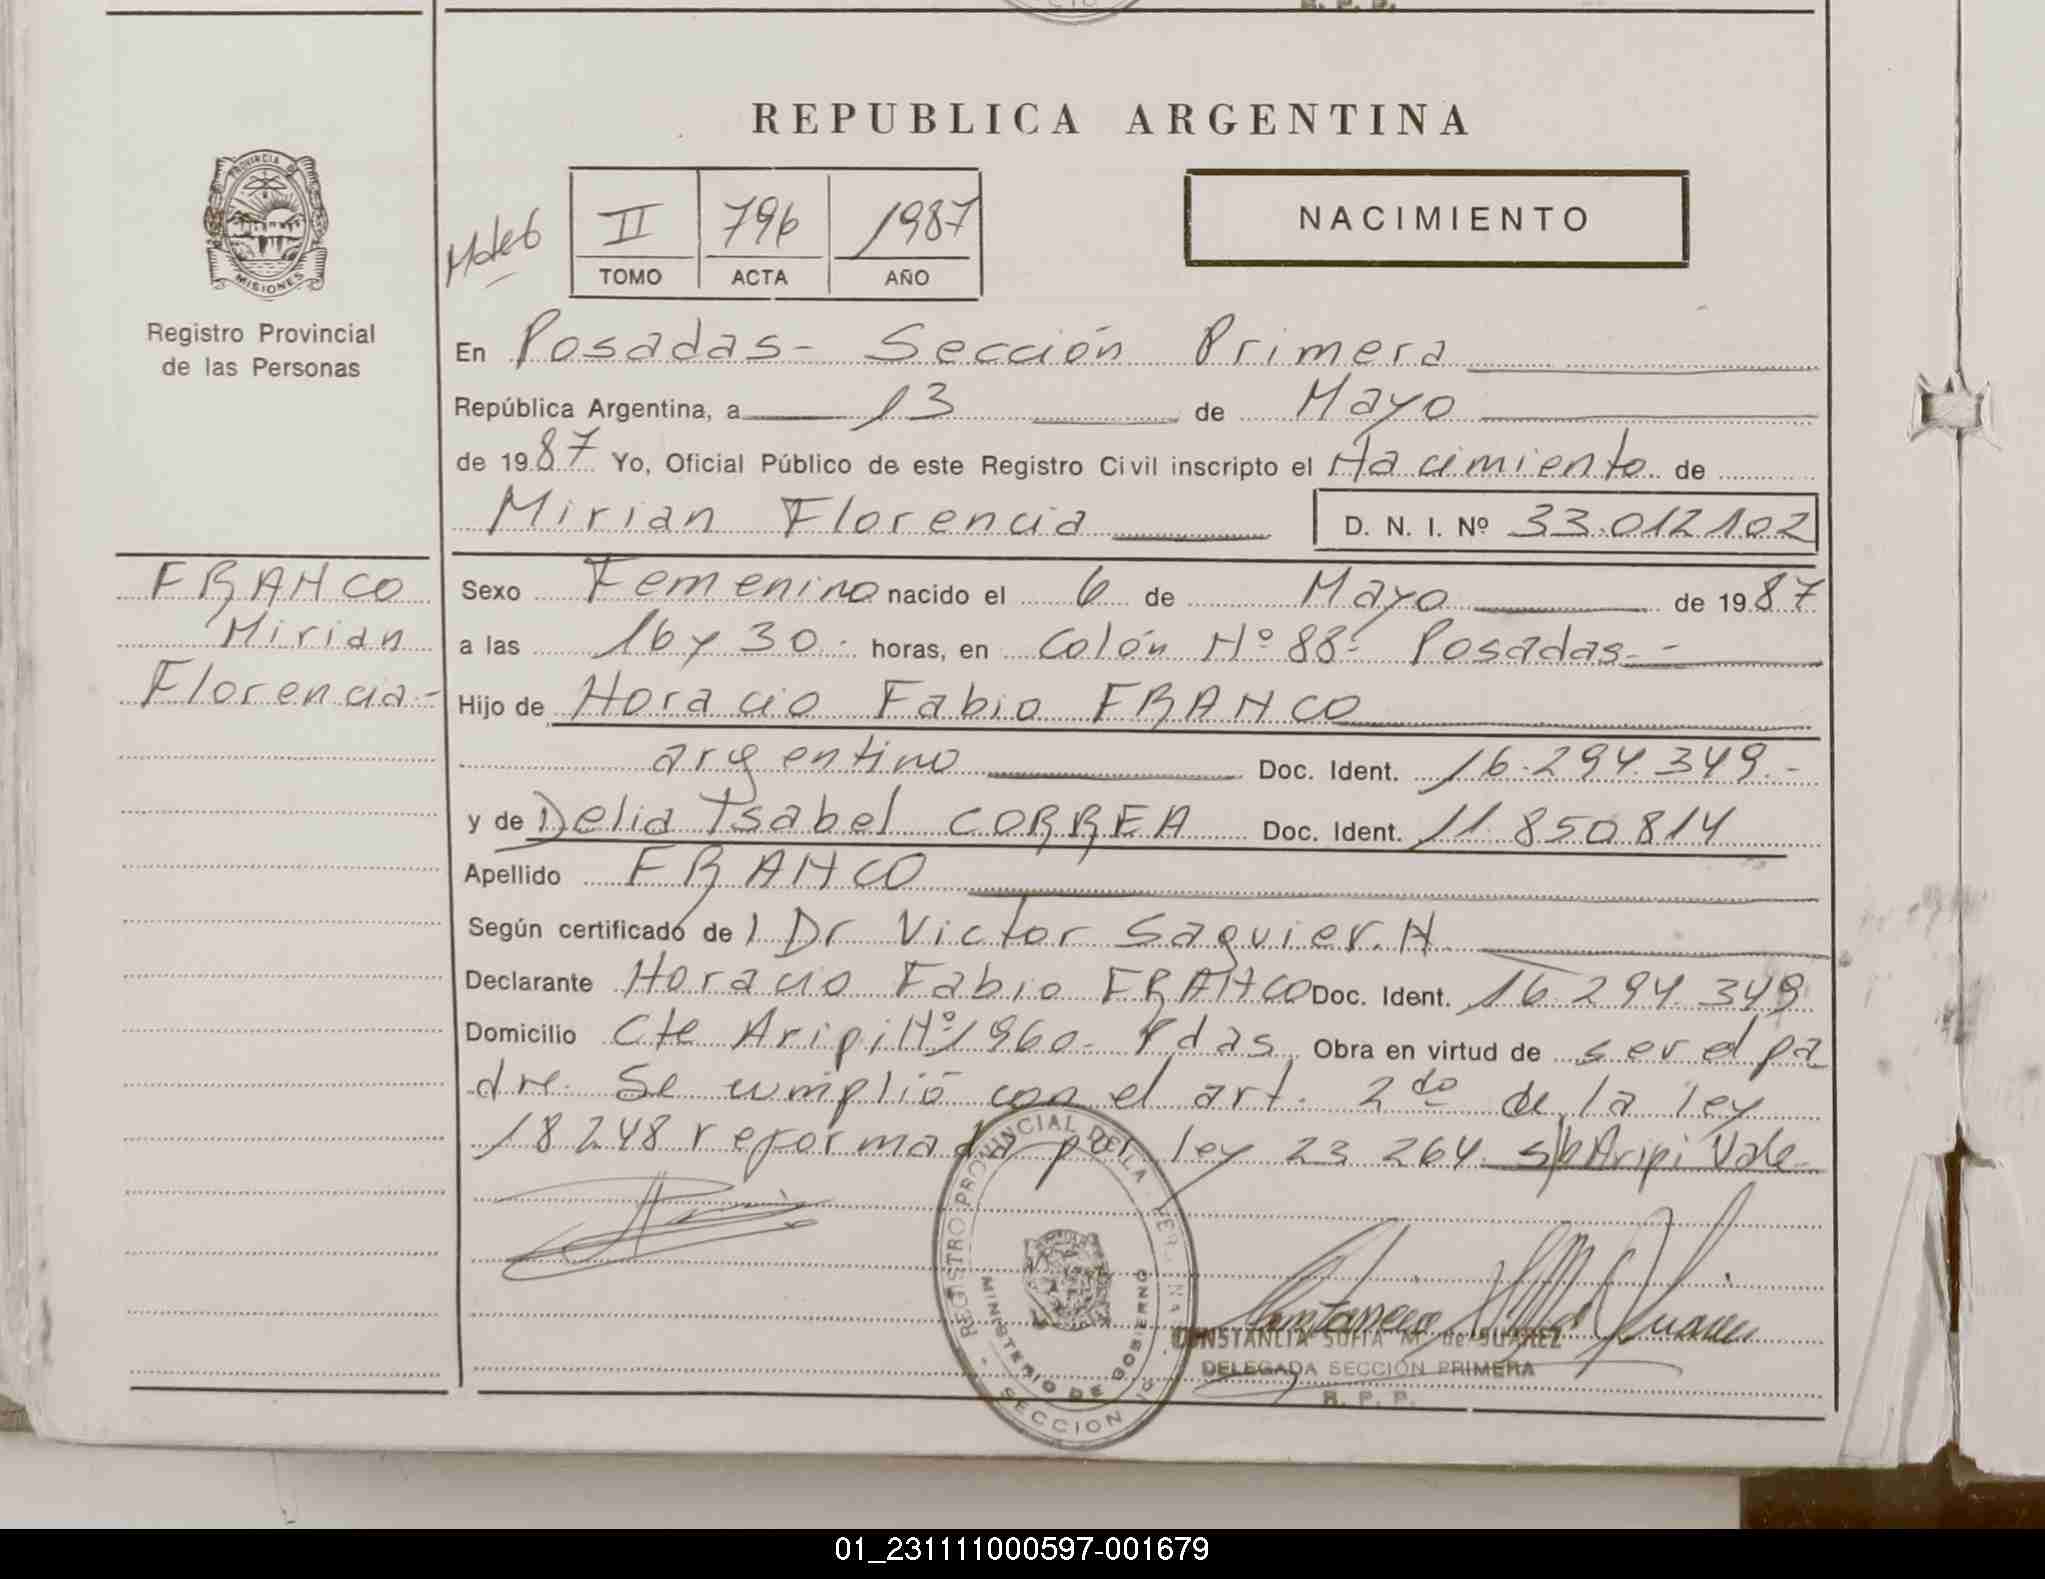 REPUBLICA ARGENTINA
PROVINCIA DE
MISIONES
Registro Provincial
de las Personas
II 796 1987
TOMO ACTA AÑO
NACIMIENTO
En Posadas- Sección Primera
República Argentina, a 13 de Mayo
de 1987 Yo, Oficial Público de este Registro Civil inscripto el Nacimiento de
Mirian Florencia D. N. I. Nº 33.012.102
FRANCO
Mirian
Florencia-
Sexo Femenino nacido el 6 de Mayo de 1987
a las 16 y 30- horas, en Colón Nº 88- Posadas-
Hijo de Horacio Fabio FRANCO
argentino Doc. Ident. 16.294.349.-
y de Delia Isabel CORREA Doc. Ident. 11.850.814
Apellido FRANCO
Según certificado de Dr Victor Saguier.N.
Declarante Horacio Fabio FRANCO Doc. Ident. 16.294.349
Domicilio Cte Aripi Nº 1960- Pdas. Obra en virtud de ser el pa
dre. Se cumplió con el art. 2do de la ley
18248 reformada por ley 23 264. s/b Aripi Vale-
REGISTRO PROVINCIAL DE LA
MINISTERIO DE GOBIERNO
SECCION
CONSTANCIA SOFIA M. de SUAREZ
DELEGADA SECCIÓN PRIMERA
R. P. P.
01_231111000597-001679